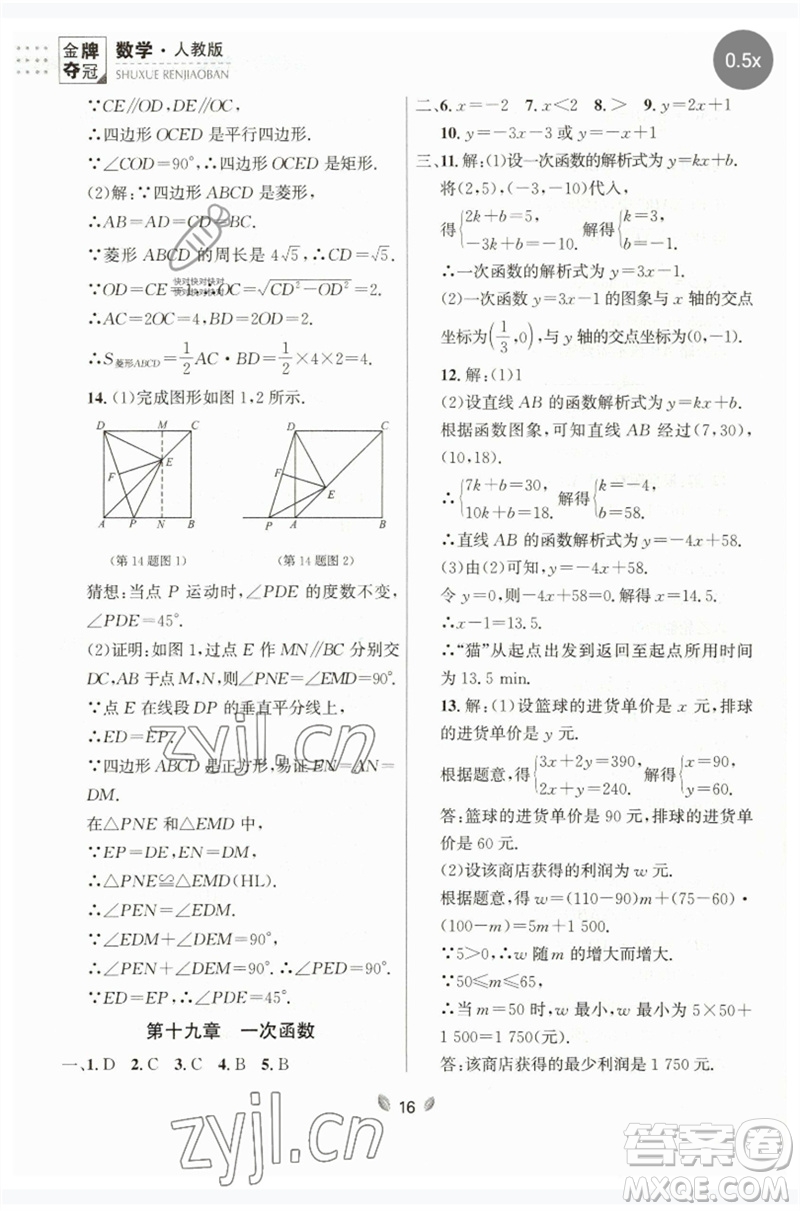 金牌
夺冠
数学·人教版
SHUXUE RENJIAOBAN
0.5x
∵CE∥OD,DE∥OC.
∴四边形 OCED 是平行四边形.
∵∠COD=90°,∴四边形 OCED 是矩形.
(2)解:∵四边形 ABCD 是菱形,
∴AB=AD=CD=BC.
∵菱形 ABCD 的周长是 4√5,∴CD=√5.
∵OD=CE=1,∴OC=√(CD²−OD²)=2.
快对快对快对
快对快对快对
∴AC=2OC=4,BD=2.
∴S菱形ABCD=1/2 AC·BD=1/2×4×2=4.
14. (1)完成图形如图 1,2 所示.
D M C
F E
A P N B
D C
F E
P A B
(第 14 题图 1) (第 14 题图 2)
猜想:当点 P 运动时,∠PDE 的度数不变,
∠PDE=45°.
(2)证明:如图 1,过点 E 作 MN∥BC 分别交
DC,AB 于点 M,N,则∠PNE=∠EMD=90°.
∵点 E 在线段 DP 的垂直平分线上,
∴ED=EP.
∵四边形 ABCD 是正方形,易证EN=AN=
DM.
在△PNE 和△EMD 中,
∵EP=DE,EN=DM,
∴△PNE≌△EMD(HL).
∴∠PEN=∠EDM.
∵∠EDM+∠DEM=90°,
∴∠PEN+∠DEM=90°.∴∠PED=90°.
∵ED=EP,∴∠PDE=45°.
第十九章 一次函数
一、1. D 2. C 3. C 4. B 5. B
二、6. x=−2 7. x<2 8. > 9. y=2x+1
10. y=−3x−3 或 y=−x+1
三、11. 解:(1)设一次函数的解析式为 y=kx+b.
将(2,5),(−3,−10)代入,
得{2k+b=5, −3k+b=−10. 解得{k=3, b=−1.
∴一次函数的解析式为 y=3x−1.
(2)一次函数 y=3x−1 的图象与 x 轴的交点
坐标为(1/3,0),与 y 轴的交点坐标为(0,−1).
12. 解:(1)1
(2)设直线 AB 的函数解析式为 y=kx+b.
根据函数图象,可知直线 AB 经过(7,30),
(10,18).
∴{7k+b=30, 10k+b=18. 解得{k=−4, b=58.
∴直线 AB 的函数解析式为 y=−4x+58.
(3)由(2)可知,y=−4x+58.
令 y=0,则−4x+58=0.解得 x=14.5.
∴x−1=13.5.
∴“猫”从起点出发到返回至起点所用时间
为 13.5 min.
13. 解:(1)设篮球的进货单价是 x 元,排球
的进货单价是 y 元.
根据题意,得{3x+2y=390, 2x+y=240. 解得{x=90, y=60.
答:篮球的进货单价是 90 元,排球的进货单
价是 60 元.
(2)设该商店获得的利润为 w 元.
根据题意,得 w=(110−90)m+(75−60)·
(100−m)=5m+1 500.
∵5>0,∴w 随 m 的增大而增大.
∵50≤m≤65,
∴当 m=50 时,w 最小,w 最小为 5×50+
1 500=1 750(元).
答:该商店获得的最少利润是 1 750 元.
16
zyjl.cn
zyjl.cn
答案卷
MXQE.COM